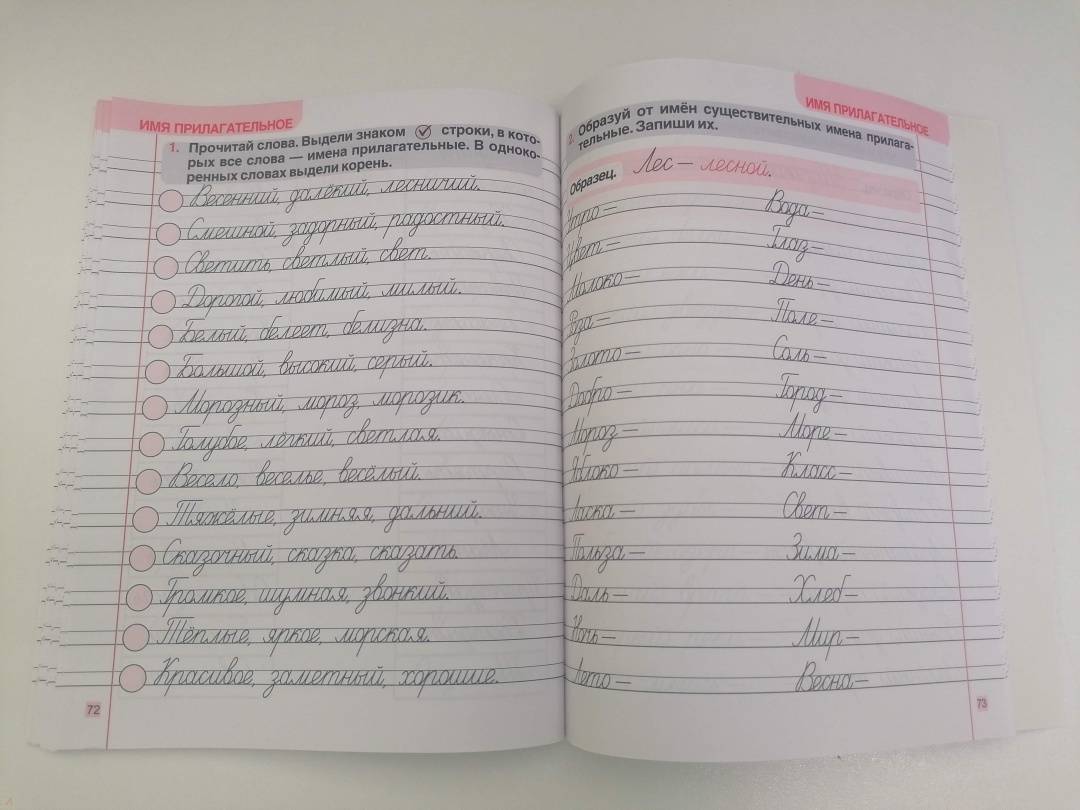 ИМЯ ПРИЛАГАТЕЛЬНОЕ
1. Прочитай слова. Выдели знаком строки, в кото-
рых все слова — имена прилагательные. В одноко-
ренных словах выдели корень.
Весенний, далёкий, лесничий.
Смешной, задорный, радостный.
Светить, светлый, свет.
Дорогой, любимый, милый.
Белый, белеет, белизна.
Большой, высокий, серый.
Морозный, мороз, морозик.
Голубое, лёгкий, светлая.
Весело, веселье, весёлый.
Тяжёлые, зимняя, дальний.
Сказочный, сказка, сказать.
Громкое, шумная, звонкий.
Тёплые, яркое, морская.
Красивое, заметный, хорошие.
72
ИМЯ ПРИЛАГАТЕЛЬНОЕ
2. Образуй от имён существительных имена прилага-
тельные. Запиши их.
Образец. Лес — лесной.
Утро — Вода —
Цвет — Глаз —
Молоко — День —
Роза — Поле —
Золото — Соль —
Добро — Город —
Мороз — Море —
Яблоко — Класс —
Ласка — Свет —
Польза — Зима —
Даль — Хлеб —
Ночь — Мир —
Лето — Весна —
73